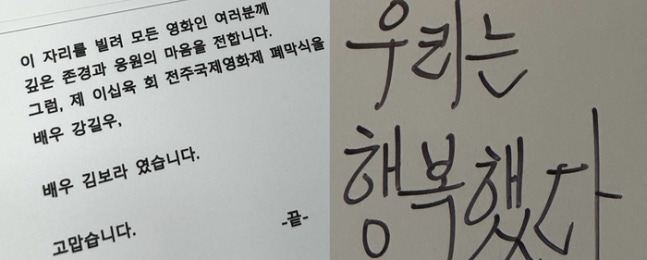 이 자리를 빌려 모든 영화인 여러분께
깊은 존경과 응원의 마음을 전합니다.
그럼, 제 이십육 회 전주국제영화제 폐막식을
배우 강길우,
배우 김보라 였습니다.
고맙습니다.
-끝-
우리는
행복했다